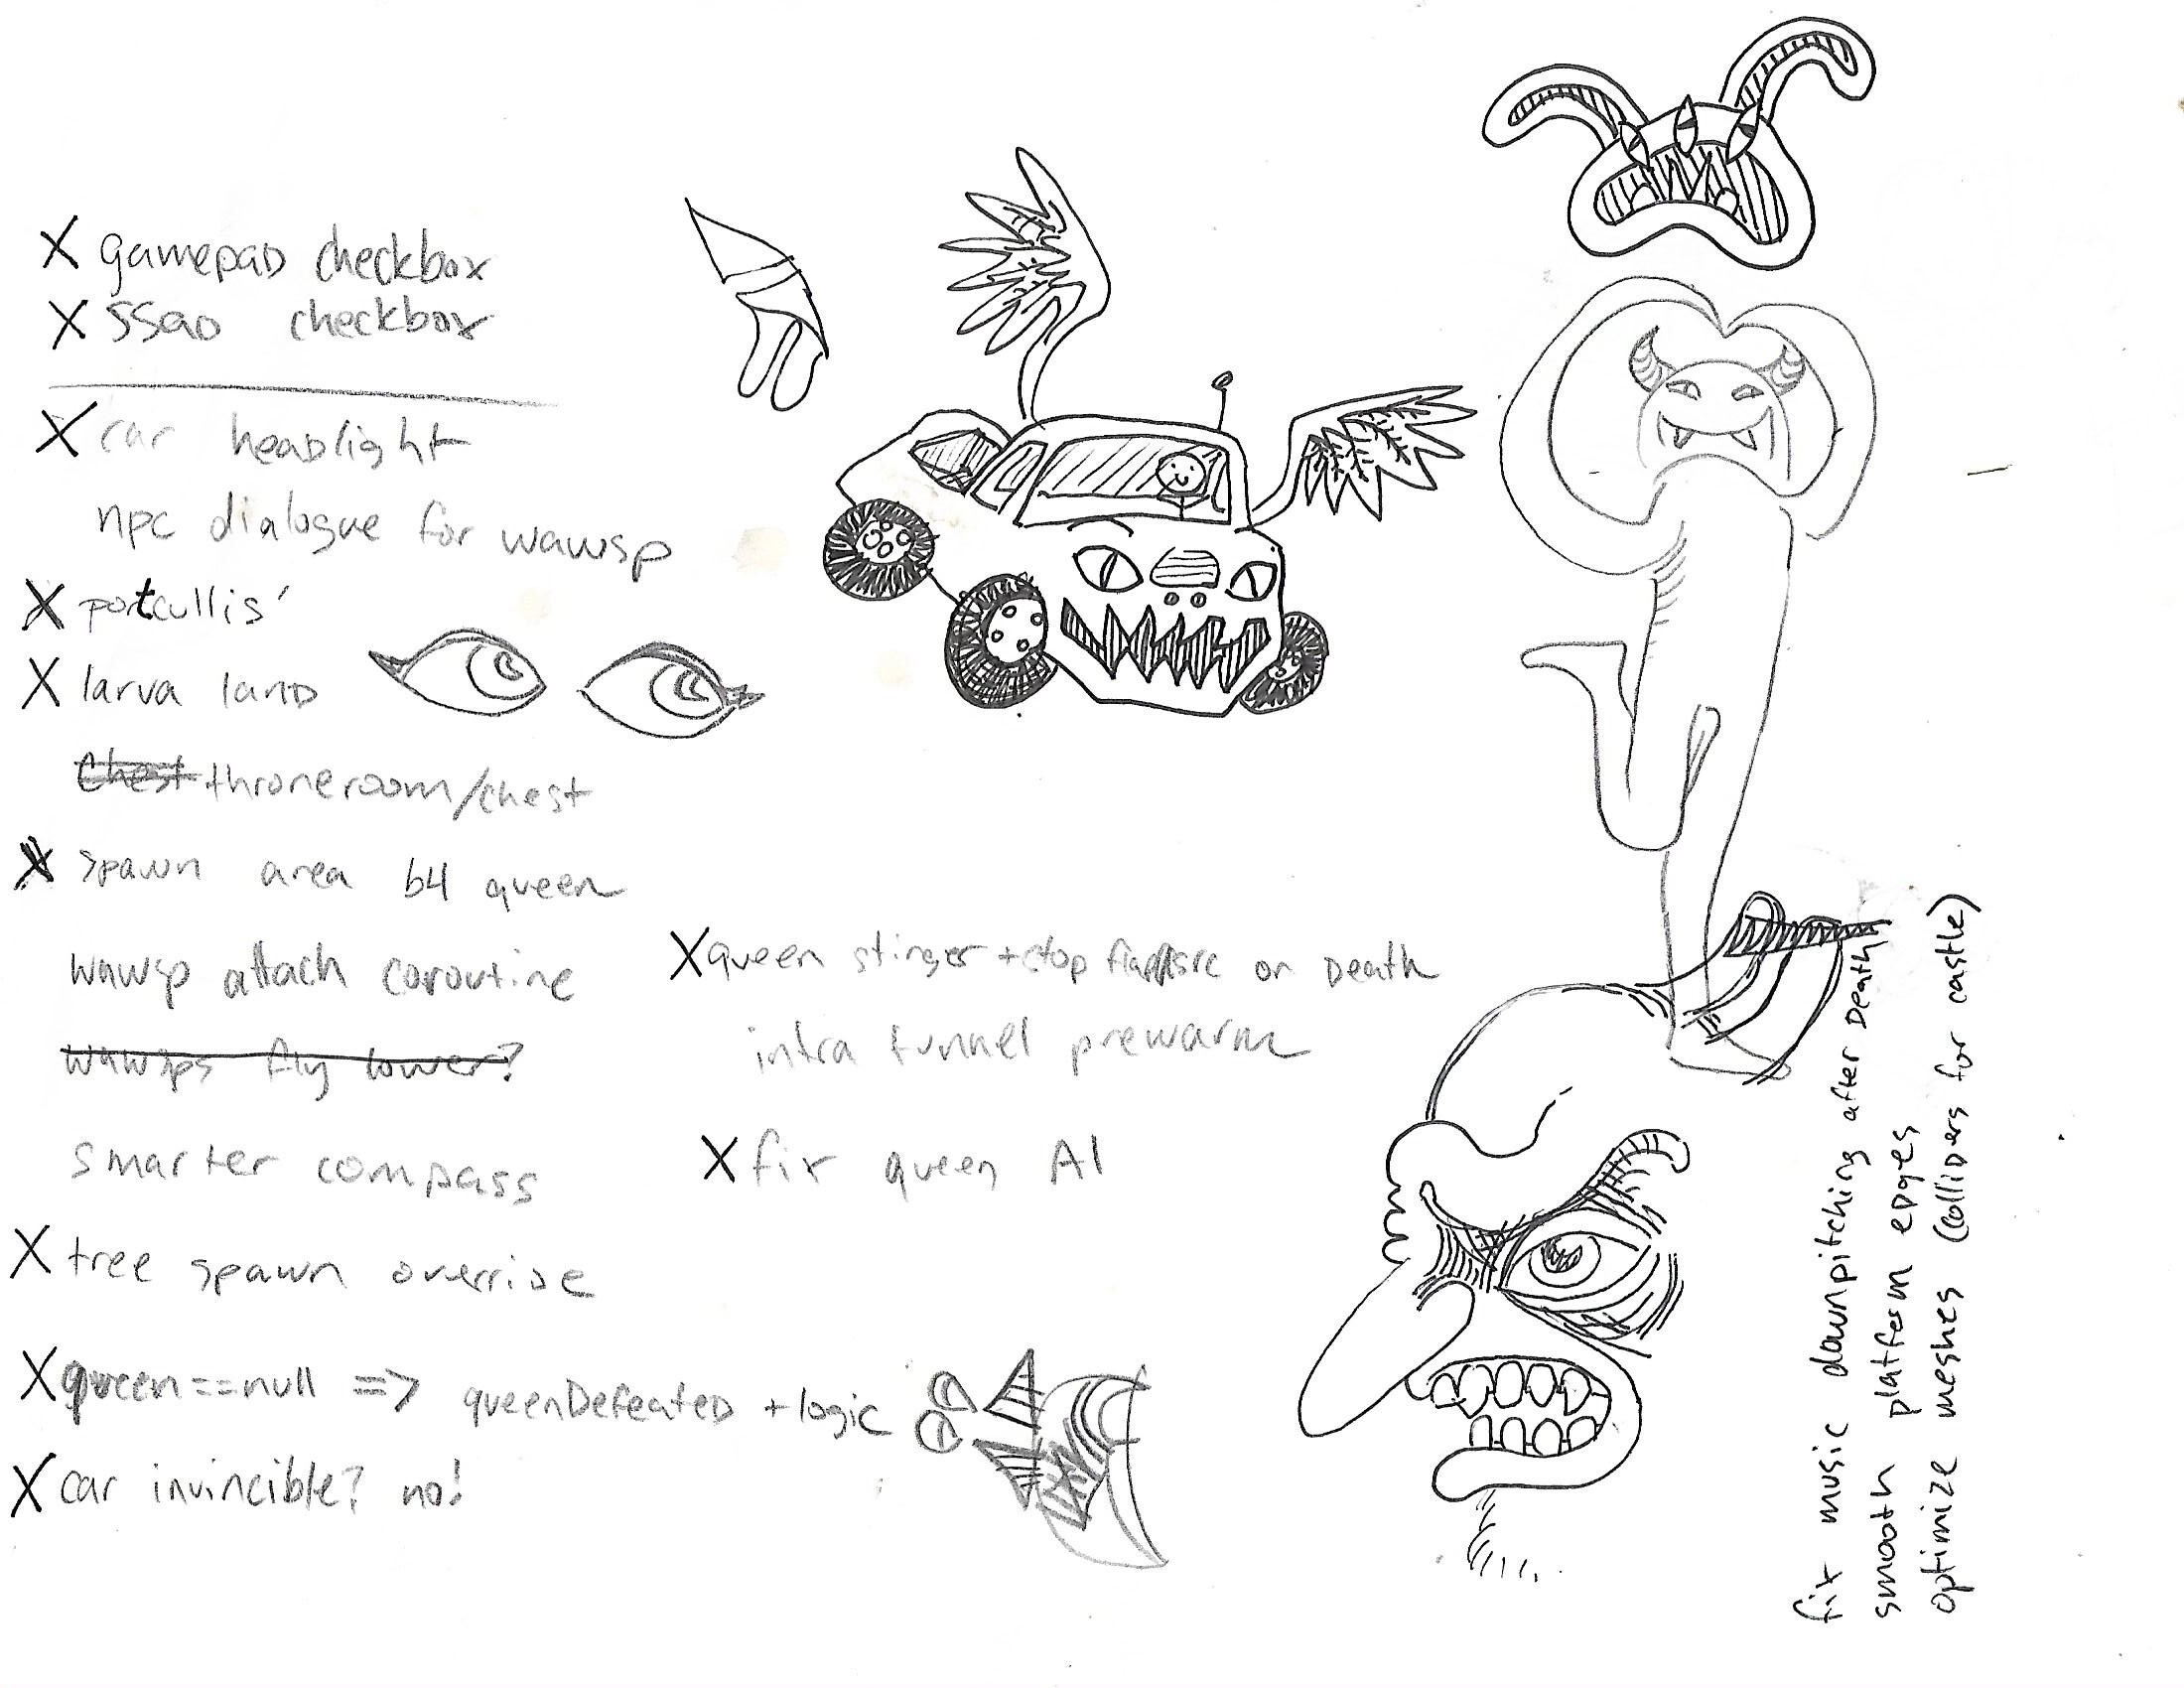 X gamepad checkbox
X ssao checkbox
X car headlight
npc dialogue for wawsp
X portcullis'
X larva land
chest throneroom/chest
X spawn area b4 queen
wawsp attach coroutine
wawsps fly lower?
smarter compass
X tree spawn override
X queen==null => queenDefeated + logic
X car invincible? no!
X queen stinger + stop on Death
intra tunnel prewarm
X fix queen AI
fix music downpitching after Death
smooth platform edges
optimize meshes (colliders for castle)